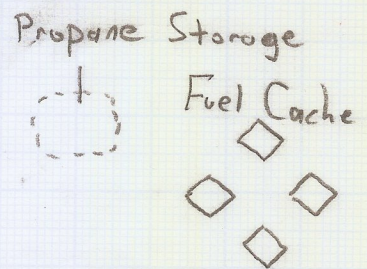 Propane Storage
Fuel Cache